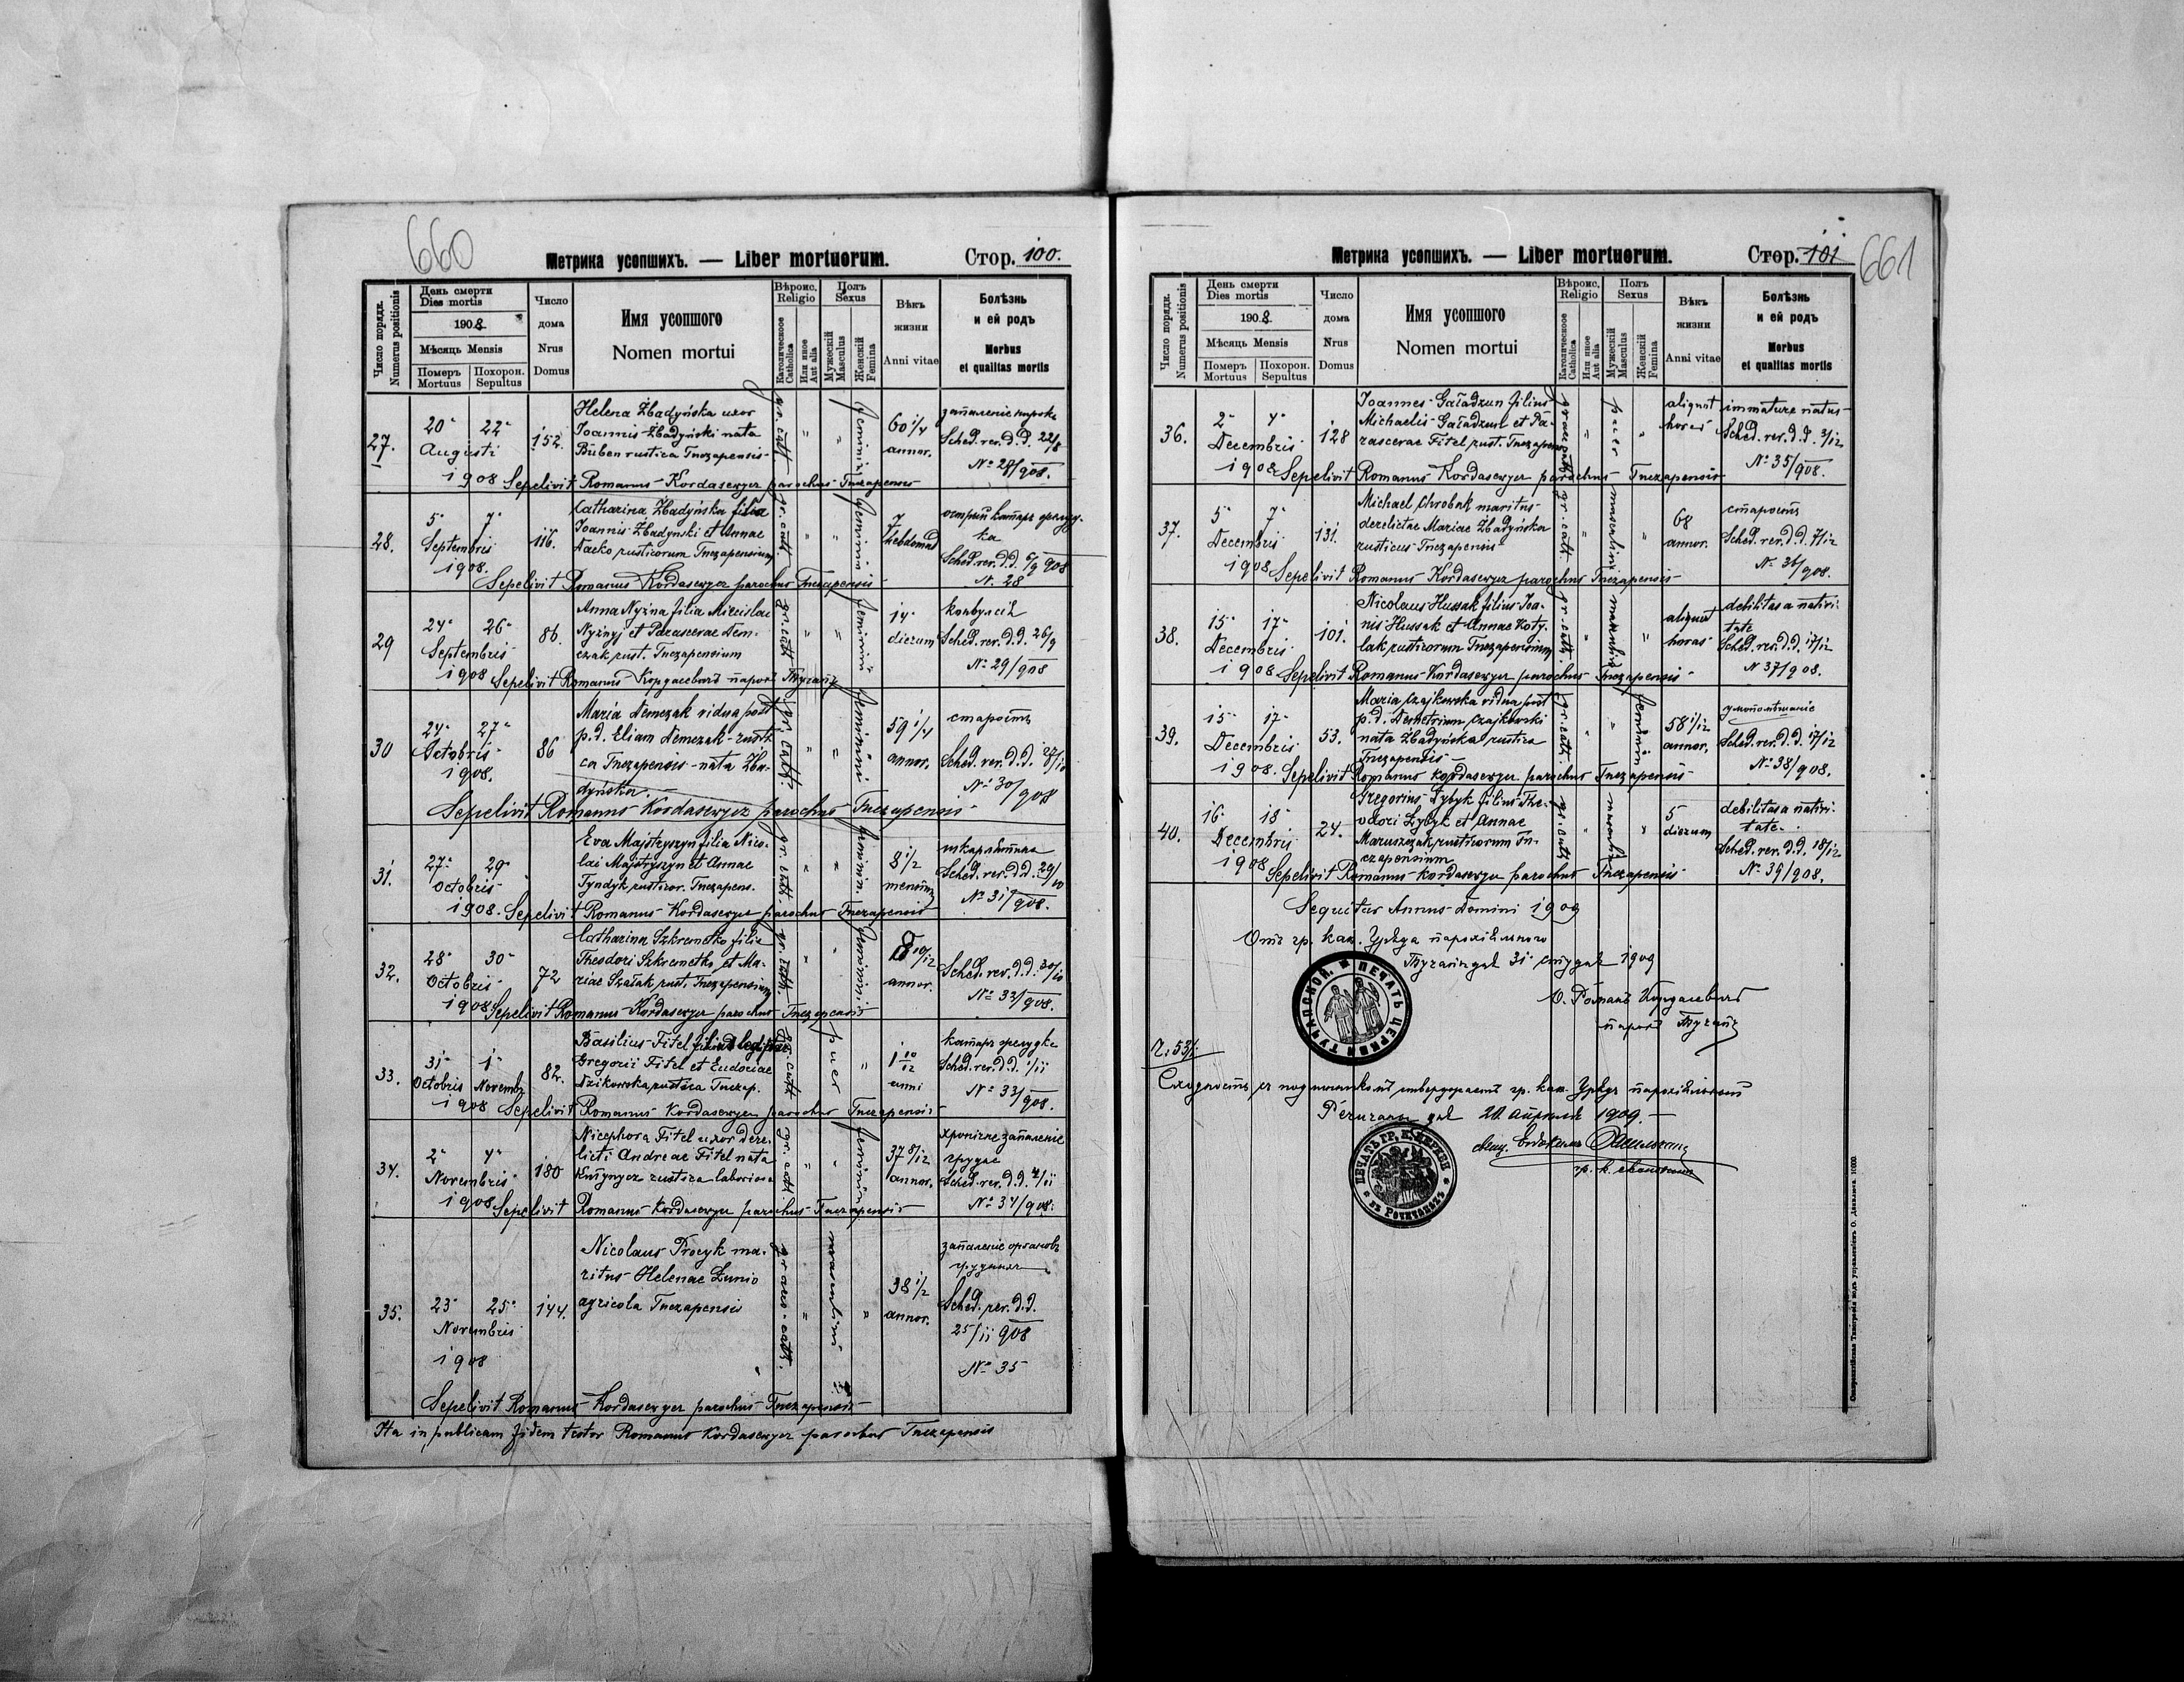 660
Метрика усопшихъ. — Liber mortuorum.
Стор. 100.
Число порядк.
Numerus positionis
День смерти
Dies mortis
1908
Мѣсяць Mensis
Померъ
Mortuus
Похорон.
Sepultus
Число
дома
Nrus
Domus
Имя усопшого
Nomen mortui
Вѣроис.
Religio
Католическоое
Catholica
Или иное
Aut alia
Полъ
Sexus
Мужескій
Masculus
Женскій
Femina
Вѣкъ
жизни
Anni vitae
Болѣзнь
и ей родъ
Morbus
et qualitas mortis
27.
20 22
Augusti
1908
152.
Helena Żbadyńska uxor
Joannis Żbadyński nata
Büben rustica Tuczapensis
gr. cath.
feminini
60 1/4
annor.
Sched. rev. d. d. 22/8
№ 27/908.
Sepelivit Romanus Kordasewycz parochus Tuczapensis
28.
5 7
Septembris
1908.
116.
Catharina Żbadyńska filia
Joannis Żbadyński et Annae
Dacko rusticorum Tuczapensium
gr. cath.
feminini
7
hebdomad
Sched. rev. d. d. 6/9 908
N. 28
Sepelivit Romanus Kordasewycz parochus Tuczapensis
29
24 26
Septembris
1908
86.
Anna Nyżna filia Miecislai
Nyżnyj et Parascevae Dem-
czak rust. Tuczapensium
gr. cath.
feminini
14
dierum
конвульсіѣ
Sched. rev. d. d. 26/9
№ 29/908
Sepelivit Romanus Кордасевич парох Тучапъ
30
24 27
Octobris
1908.
86
Maria Demczak vidua post
p. d. Eliam Demczak rusti
ca Tuczapensis nata Żba-
dyńska.
gr. cath.
feminini
59 1/4
annor.
старость
Sched. rev. d. d. 27/10
№ 30/908
Sepelivit Romanus Kordasewycz parochus Tuczapensis
31.
27 29
Octobris
1908.
Eva Majstryszyn filia Nico-
lai Majstryszyn et Annae
Tyndyk rusticor. Tuczapens.
gr. cath.
feminin.
8 1/2
mensium
шкарлятина
Sched. rev. d. d. 29/10
№ 31/908.
Sepelivit Romanus Kordasewycz parochus Tuczapensis
32.
28 30
Octobris
1908
72
Catharina Szkremetko filia
Theodori Szkremetko et Ma-
riae Szałak rust. Tuczapensium
gr. cath.
feminini
8 10/12
annor.
Sched. rev. d. d. 30/10
№ 32/908.
Sepelivit Romanus Kordasewycz parochus Tuczapensis
33.
31 1
Octobris Novemb.
1908
82.
Basilius Fitel filius
Gregorii Fitel et Eudociae
Dzikowska rustica Tuczap.
gr. cath.
puer
1 10/12
anni
катаръ желудка
Sched. rev. d. d. 1/11
№ 33/908.
Sepelivit Romanus Kordasewycz parochus Tuczapensis
34.
2 4
Novembris
1908
180
Nicephora Fitel uxor dere-
licti Andreae Fitel nata
rustica laboriosa
gr. cath.
feminini
37 8/12
annor.
хронічне запаленіе
грудис
Sched. rev. d. d. 4/11
№ 34/908.
Sepelivit Romanus Kordasewycz parochus Tuczapensis
35.
23 25
Novembris
1908
144.
Nicolaus Procyk ma-
ritus Helenae Łunio
agricola Tuczapensis
graeco-cath.
masculini
38 1/2
annor.
запаленіе органовъ
грудныхъ
Sched. rev. d. d.
25/11 908
№ 35
Sepelivit Romanus Kordasewycz parochus Tuczapensis
Ita in publicam fidem testor Romanus Kordasewycz parochus Tuczapensis
Метрика усопшихъ. — Liber mortuorum.
Стор. 101
661
Число порядк.
Numerus positionis
День смерти
Dies mortis
1908.
Мѣсяць Mensis
Померъ
Mortuus
Похорон.
Sepultus
Число
дома
Nrus
Domus
Имя усопшого
Nomen mortui
Вѣроис.
Religio
Католическоое
Catholica
Или иное
Aut alia
Полъ
Sexus
Мужескій
Masculus
Женскій
Femina
Вѣкъ
жизни
Anni vitae
Болѣзнь
и ей родъ
Morbus
et qualitas mortis
36.
2 4
Decembris
1908
128
Joannes Gaładzun filius
Michaelis Gaładzun et Pa-
rascevae Fitel rust. Tuczapens
graeco cath.
puer
aliquot
horas
immature natus
Sched. rev. d. d. 3/12
№ 35/908.
Sepelivit Romanus Kordasewycz parochus Tuczapensis
37.
5 7
Decembris
1908
131.
Michael Chrobak maritus
derelictae Mariae Żbadyńska
rusticus Tuczapensis
gr. cath.
masculini
68
annor.
старость
Sched. rev. d. d. 7/12
№ 36/908.
Sepelivit Romanus Kordasewycz parochus Tuczapensis
38.
15 17
Decembris
1908
101.
Nicolaus Hussak filius Joa-
nis Hussak et Annae Koty-
lak rusticorum Tuczapensium
gr. cath.
masculini
aliquot
horas
debilitas a nativi-
tate
Sched. rev. d. d. 17/12
N 37/908.
Sepelivit Romanus Kordasewycz parochus Tuczapensis
39.
15 17
Decembris
1908.
53.
Maria Czajkowska vidua post
p. d. Demetrium Czajkowski
nata Żbadyńska rustica
Tuczapensis
gr. cath.
feminini
58 1/12
annor.
Sched. rev. d. d. 17/12
№ 38/908.
Sepelivit Romanus Kordasewycz parochus Tuczapensis
40.
16 18
Decembris
1908
24.
Gregorius Dybyk filius The-
odori Dybyk et Annae
Maruszczak rusticorum Tu-
czapensium
gr. cath.
masculini
5
dierum
debilitas a nativi-
tate.
Sched. rev. d. d. 18/12
№ 39/908.
Sepelivit Romanus Kordasewycz parochus Tuczapensis
Sequitur Annus Domini 1909
Отъ гр. кат. Уряда парохіяльного
Тучапы дня 31 студня 1909
О. Романъ Кордасевич
парох Тучапъ
ПЕЧАТЬ ЦЕРКВИ ТУЧАПСКОЙ.
Ч. 53/
Сходность съ подлинникомъ утверджаетъ гр. кат. Урядъ парохіяльный
дня 20 апрѣля 1909.
ПЕЧАТЬ ГР. К. ЦЕРКВИ въ Рочичахъ